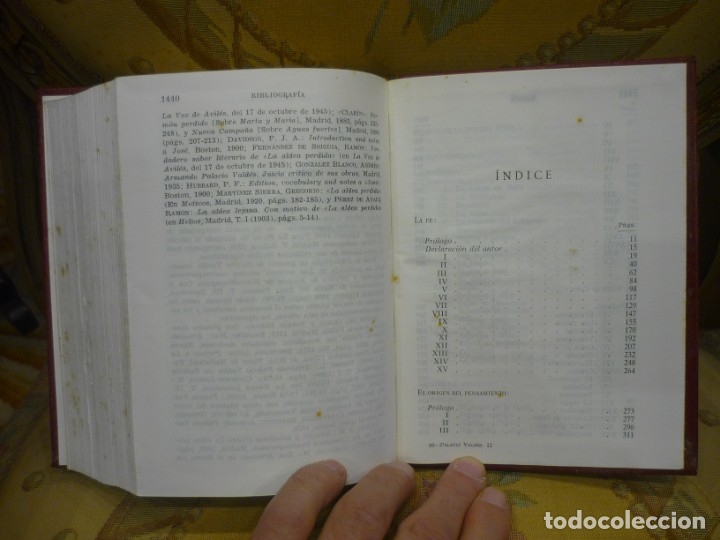 1440 BIBLIOGRAFÍA
La Voz de Avilés, del 17 de octubre de 1945); «CLARÍN»: Ser-
món perdido [Sobre Marta y María], Madrid, 1885, págs.
248), y Nueva Campaña [Sobre Aguas fuertes], Madrid,
(págs. 207-213); DAVIDSON, F. J. A.: Introduction and notes
a José, Boston, 1900; FERNÁNDEZ DE
dadero sabor literario de «La aldea perdida» (en La Voz de
Avilés, del 17 de octubre de 1945); GONZÁLEZ BLANCO,
Armando Palacio Valdés. Juicio crítico de sus obras,
HUBBARD, F. F.: Edition, vocabulary and notes a
Boston, 1900; MARTÍNEZ SIERRA, GREGORIO: «La aldea perdida»
(En Motivos, Madrid, 1920, págs. 182-185), y PÉREZ DE AYALA,
RAMÓN: La aldea lejana. Con motivo de «La aldea perdida»
(en Helios, Madrid, T. I (1903), págs. 5-14).
ÍNDICE
Págs.
LA FE:
Prólogo 11
Declaración del autor 15
I 19
II 40
III 62
IV 84
V 98
VI 117
VII 129
VIII 147
IX 155
X 170
XI 192
XII 207
XIII 232
XIV 248
XV 264
EL ORIGEN DEL PENSAMIENTO:
Prólogo 273
I 277
II 296
III 311
PALACIO VALDÉS. II
todocoleccion.net